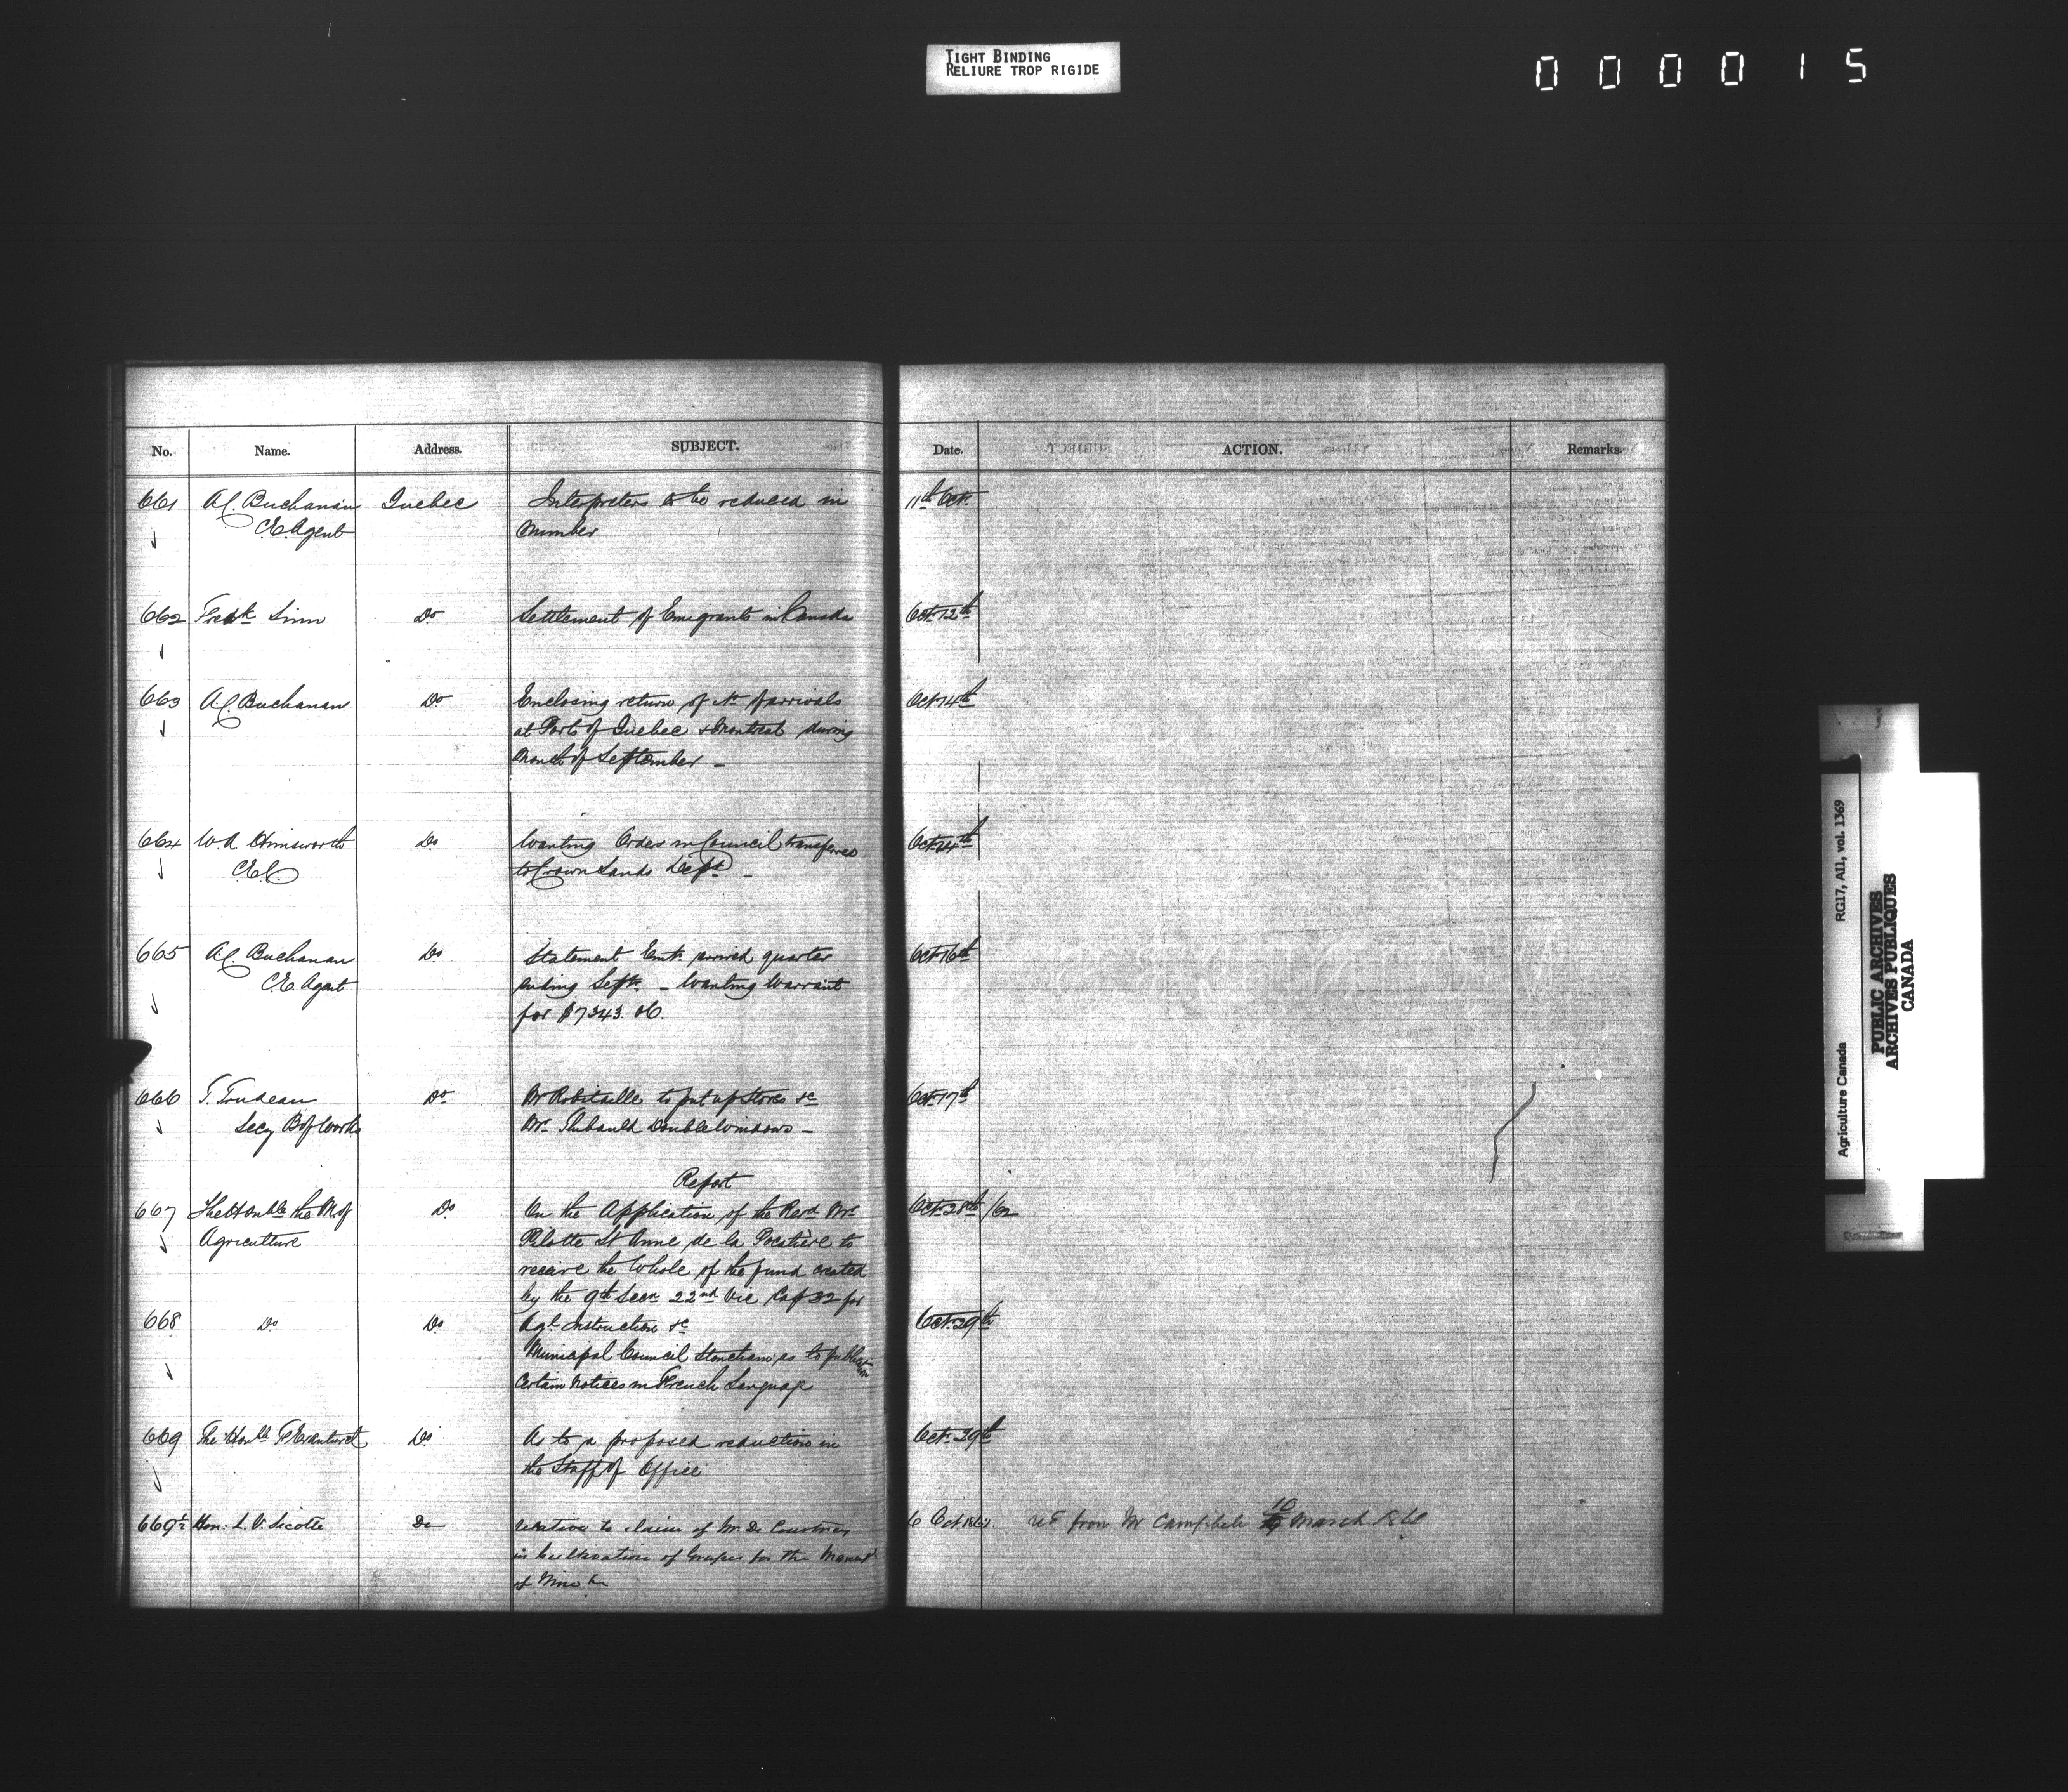 TIGHT BINDING
RELIURE TROP RIGIDE
000015
No. Name. Address. SUBJECT. Date. ACTION. Remarks.
661 A.C. Buchanan Quebec Interpreters to be reduced in 11th Oct.
C.E. Agent number
662 Fredk Sinn Do Settlement of Emigrants in Canada Oct 12th
663 A.C. Buchanan Do Enclosing return of No of arrivals Oct 14th
at Port of Quebec & Montreal during
Month of September –
664 W.A. Himsworth Do Wanting Orders in Council transferred Oct 14th
C.E.C to Crown Lands Dept –
665 A.C. Buchanan Do Statement Emts arrived quarter Oct 16th
C.E. Agent ending Sept. – Wanting Warrant
for $7343.06.
666 T. Trudeau Do Mr Robitaille to put up Stoves &c Oct 17th
Secy B of Works Mr. Thibauld Double Windows –
Report
667 The Honble the M of Do On the Application of the Revd Mr Oct 28th /62
Agriculture Pilotte St Anne de la Pocatière to
receive the whole of the fund created
by the 9th Secn 22nd Vic Cap 32 for
668 Do Do Agl. Instruction &c Oct 29th
Municipal Council Stoneham as to publication
Certain Notices in French Language
669 The Honble F Evanturel Do As to a proposed reduction in Oct. 29th
the Staff of Office
669½ Hon. L.V. Sicotte Do Relative to claim of M. De Courtnay 6 Oct 1862. from Mr Campbell 10 March
in Cultivation of Grapes for the Manuf
of Wine &c
Agriculture Canada RG17, AI1, vol. 1369
PUBLIC ARCHIVES
ARCHIVES PUBLIQUES
CANADA